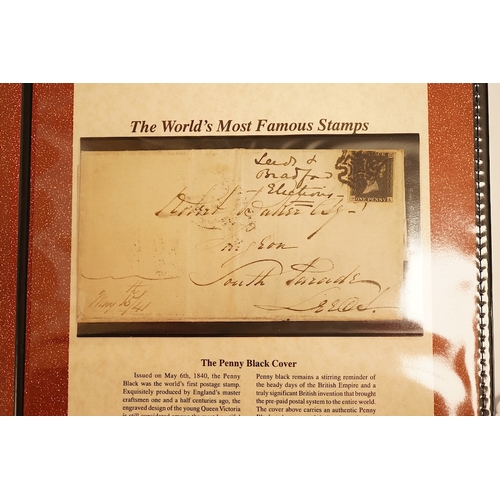 The World's Most Famous Stamps
Leeds &
Bradford
Elections
Robert Esqr
Surgeon
South Parade
Leeds.
May 16th/41
ONE PENNY
The Penny Black Cover
Issued on May 6th, 1840, the Penny
Black was the world's first postage stamp.
Exquisitely produced by England's master
craftsmen one and a half centuries ago, the
engraved design of the young Queen Victoria
is still considered among the most beautiful
Penny black remains a stirring reminder of
the heady days of the British Empire and a
truly significant British invention that brought
the pre-paid postal system to the entire world.
The cover above carries an authentic Penny